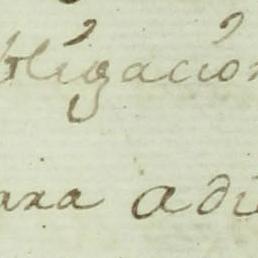 bligación
para adi